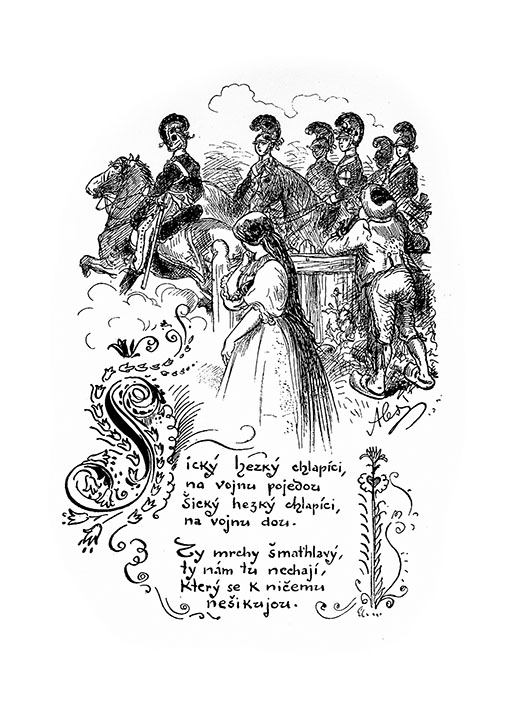 Aleš
Šický hezký chlapíci,
na vojnu pojedou
Šický hezký chlapíci,
na vojnu dou.
Ty mrchy šmathlavý,
ty nám tu nechají,
Který se k ničemu
nešikujou.